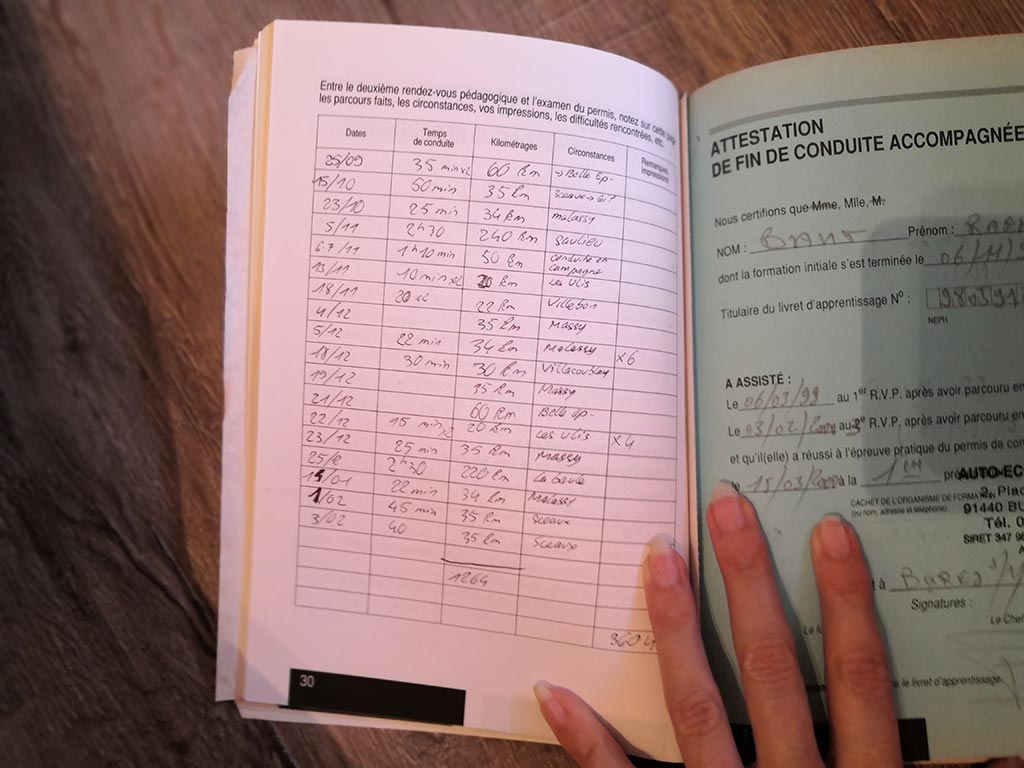 Entre le deuxième rendez-vous pédagogique et l'examen du permis, notez sur cette page
les parcours faits, les circonstances, vos impressions, les difficultés rencontrées, etc.
Dates Temps de conduite Kilométrages Circonstances Remarques impressions
25/09 35 min x2 60 km → Belle Ep-
15/10 50 min 35 km Sceaux →
23/10 25 min 34 km malassy
5/11 2h30 240 km gaulieu
6.7/11 1h10 min 50 km conduite en campagne
13/11 10 min x2 20 km Les Ulis
18/11 20 x2 22 km Villebon
4/12 35 km Massy
5/12 22 min 34 km Malassy x6
18/12 30 min 30 km Villacoublay
19/12 35 km Massy
21/12 60 km Belle ep-
22/12 15 min x2 20 km Les Ulis x4
23/12 25 min 35 km Massy
2h30 220 km La baule
22 min 34 km Malassy
1/02 45 min 35 km Sceaux
3/02 40 35 km Sceaux
1264
30
ATTESTATION
DE FIN DE CONDUITE ACCOMPAGNÉE
Nous certifions que Mme, Mlle, M.
NOM : Prénom :
dont la formation initiale s'est terminée le 06/11/
Titulaire du livret d'apprentissage N° :
NEPH
A ASSISTÉ :
Le 06/03/99 au 1er R.V.P. après avoir parcouru en
Le 03/02/2000 au R.V.P. après avoir parcouru en
et qu'il(elle) a réussi à l'épreuve pratique du permis de
le 15/03/2000 à la 1ère
AUTO-EC
CACHET DE L'ORGANISME DE FORMA
(ou nom, adresse et téléphone)
Plac
91440 BU
Tél. 0
SIRET 347 98
à Bures
Signatures :
Le Chef
le livret d'apprentissage